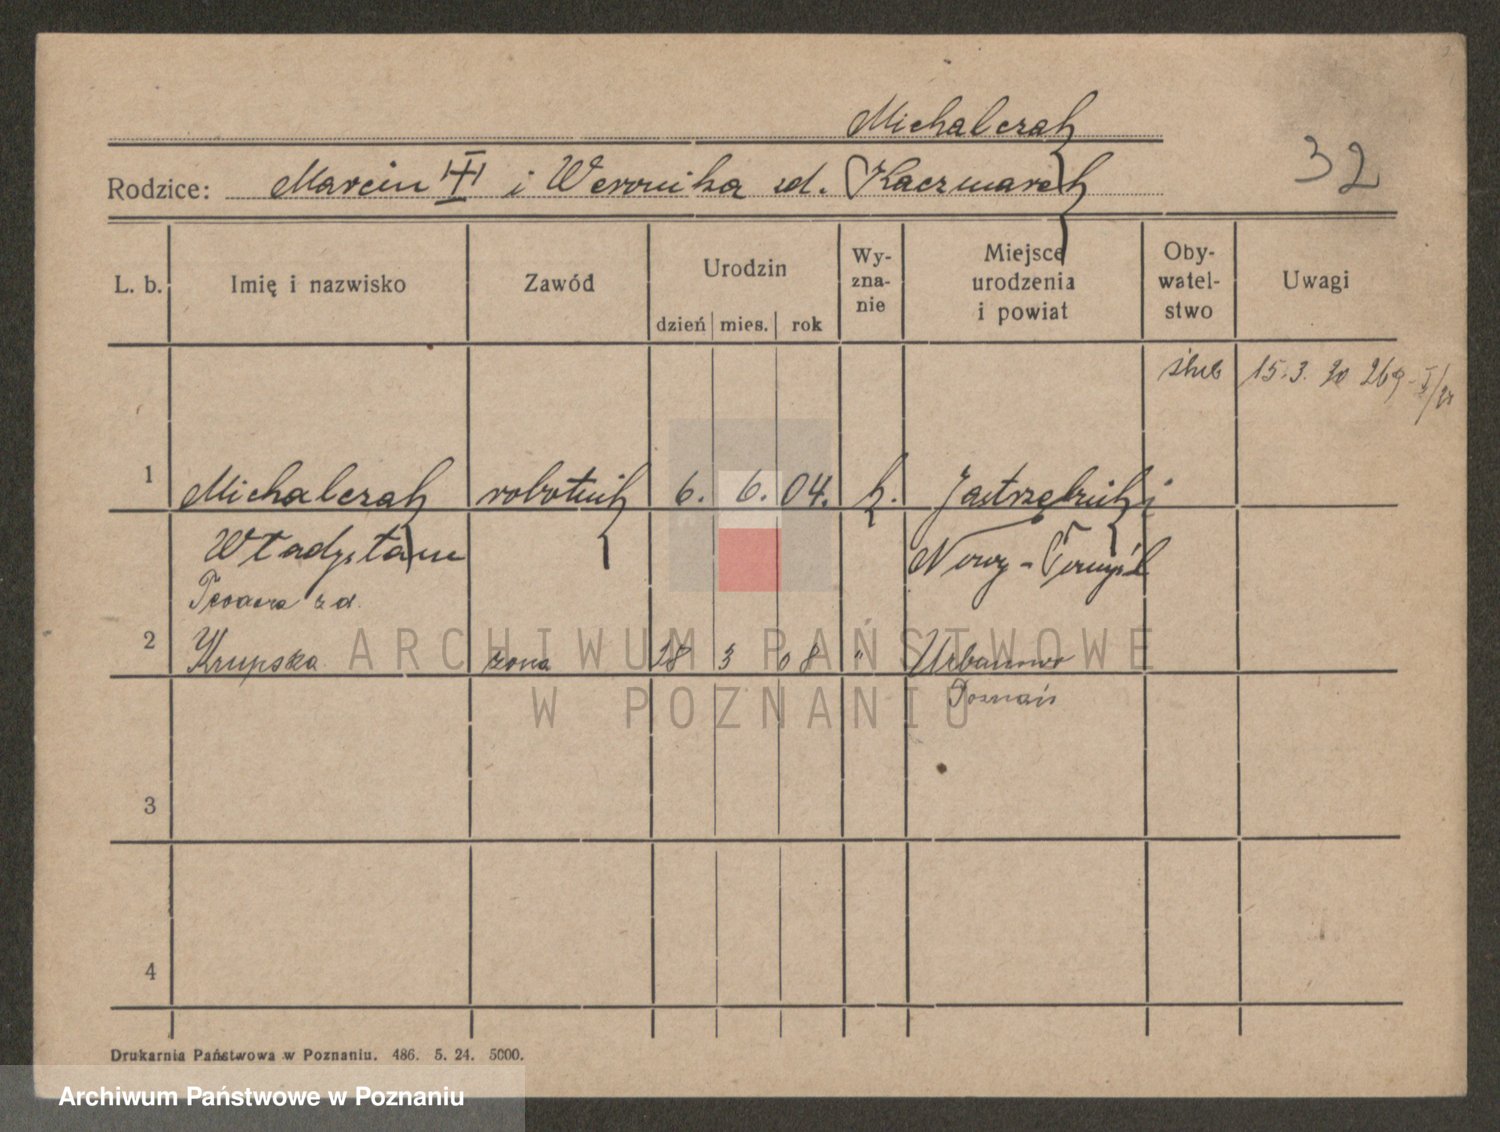 Michalczak
Rodzice: Marcin i Weronika zd. Kaczmarek
32
L. b. Imię i nazwisko Zawód Urodzin dzień mies. rok Wy- zna- nie Miejsce urodzenia i powiat Oby- watel- stwo Uwagi
ślub 15. 3. 30 269
1 Michalczak robotnik 6. 6. 04. k. Jastrzębniki
Władysław Nowy-Tomyśl
zd.
2 Krupska żona 18 3 08 " Urbanowo
Poznań
3
4
ARCHIWUM PAŃSTWOWE
W POZNANIU
Drukarnia Państwowa w Poznaniu. 486. 5. 24. 5000.
Archiwum Państwowe w Poznaniu